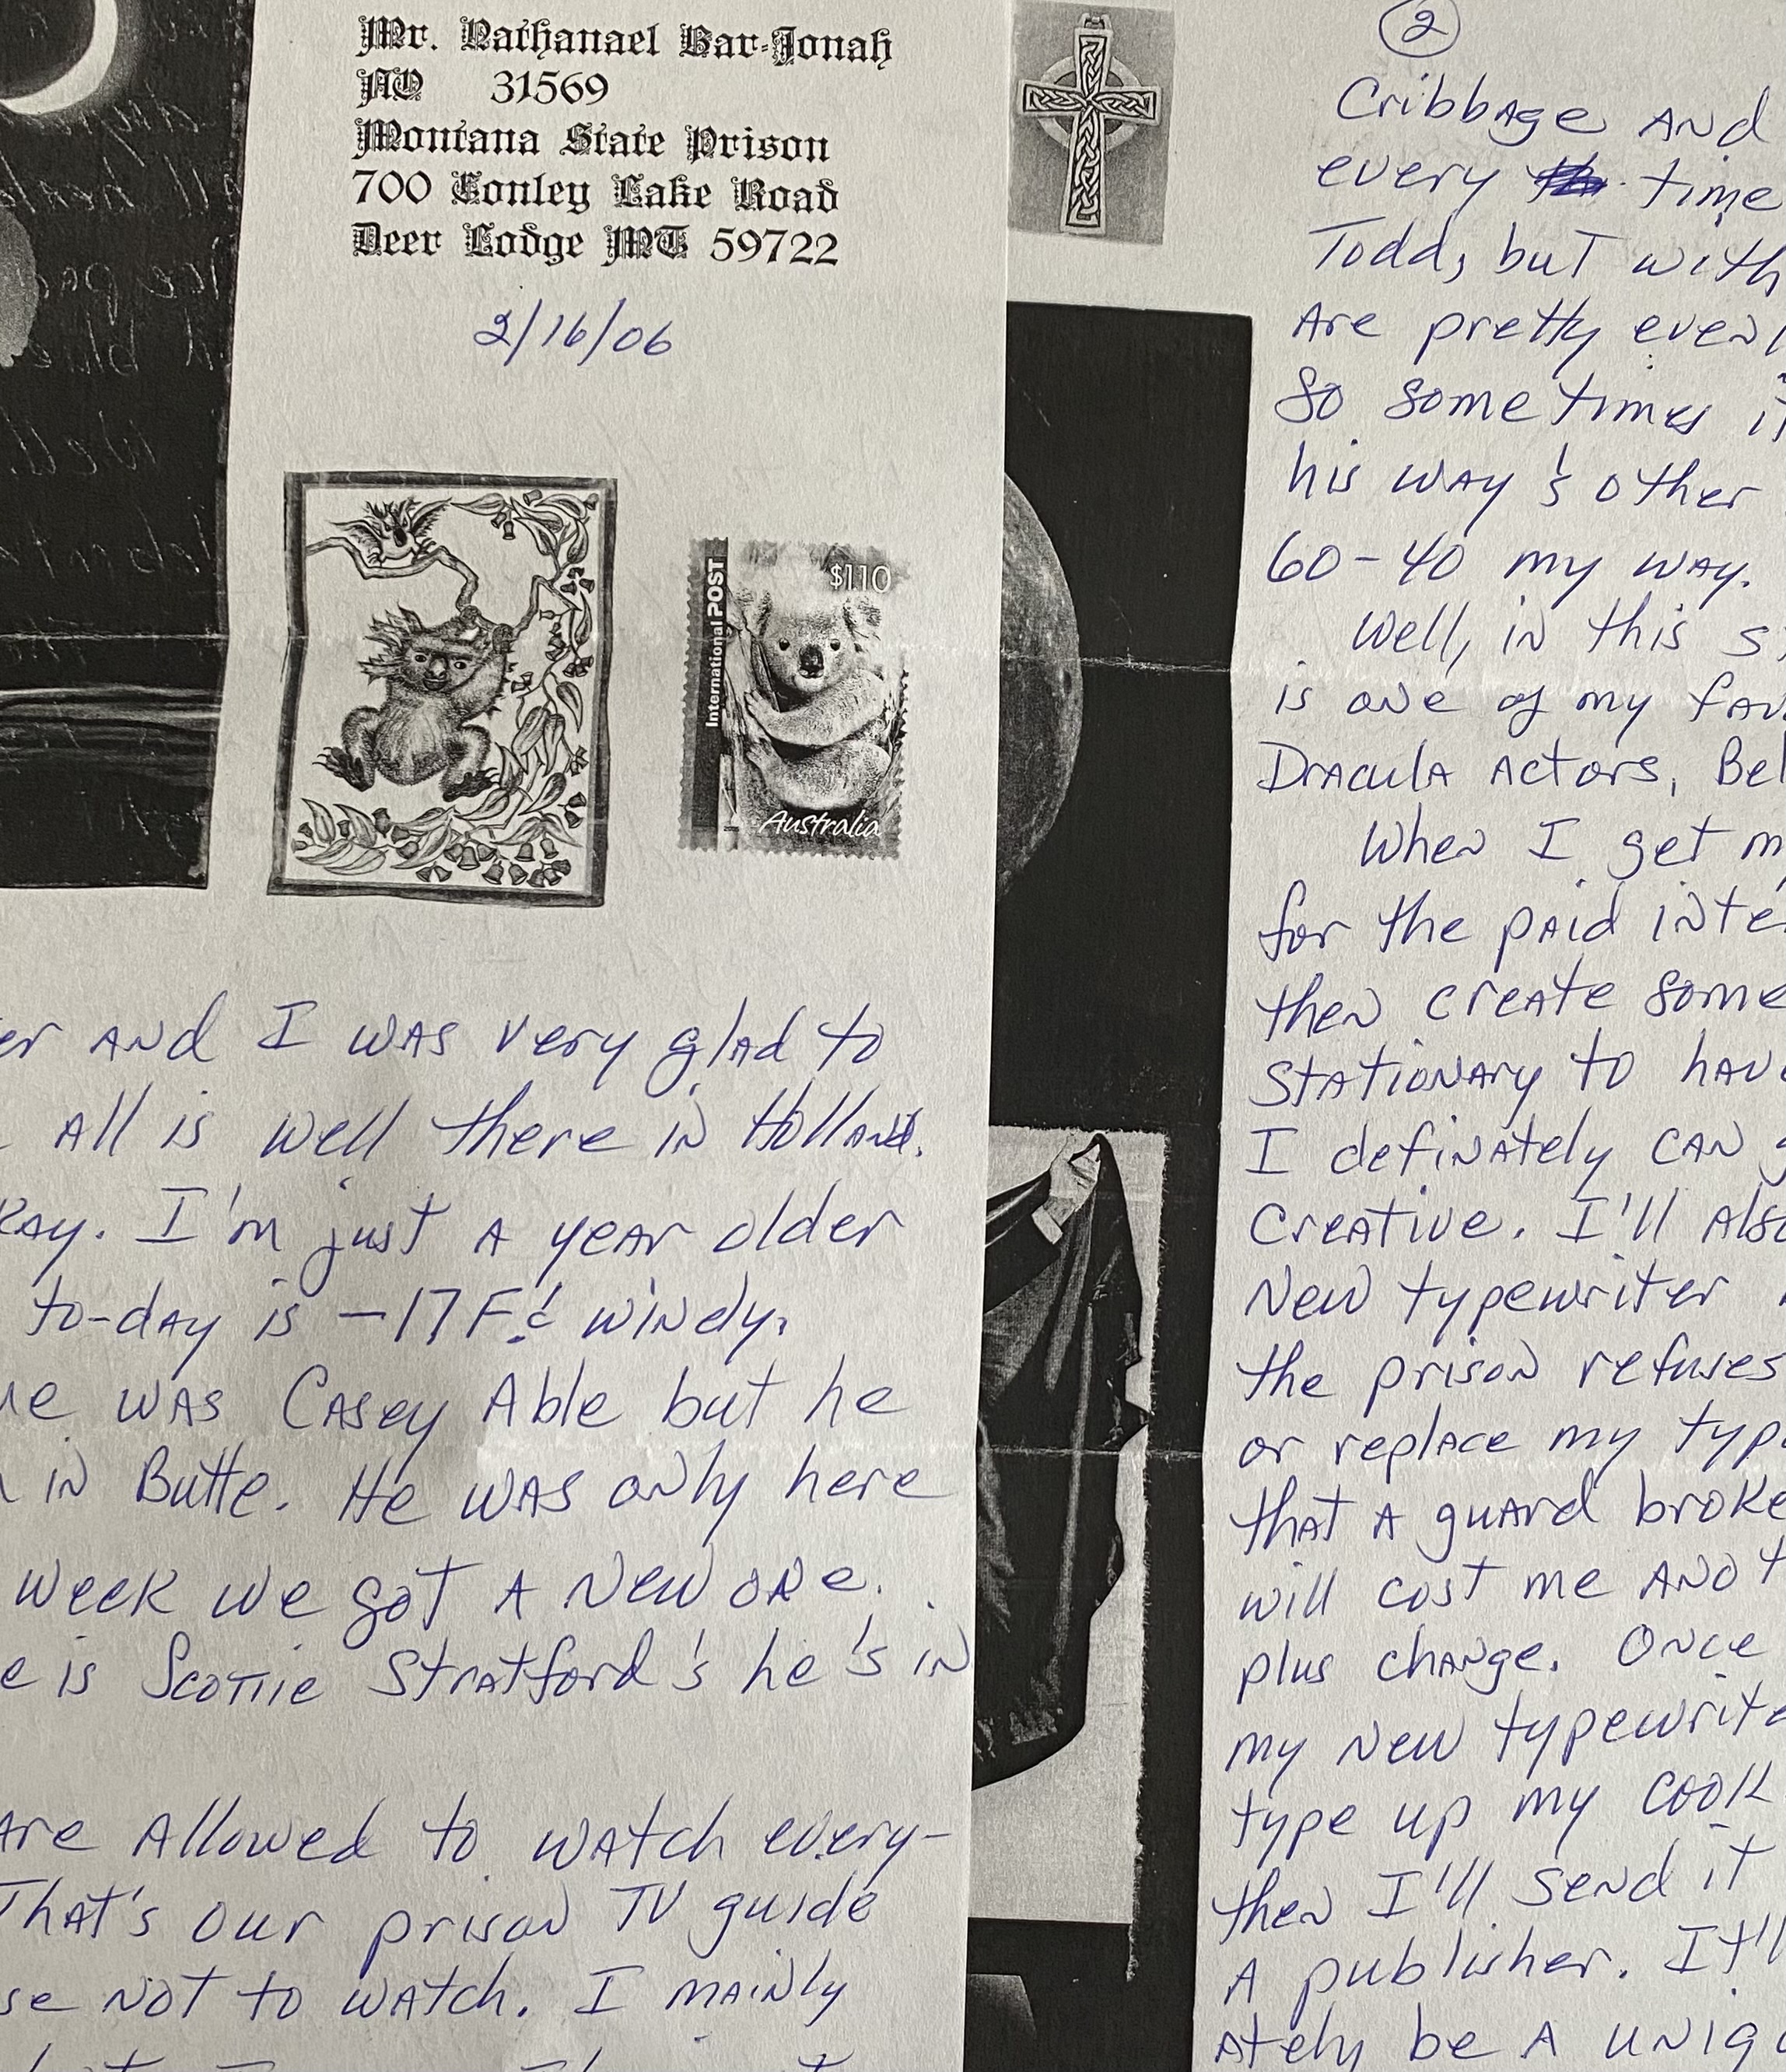 Mr. Nathanael Bar-Jonah
AO 31569
Montana State Prison
700 Conley Lake Road
Deer Lodge MT 59722
2/16/06
$1.10
International POST
Australia
er AND I WAS very glad to
All is well there in Holland.
KAy. I'm just A year older
to-day is -17 F. & windy.
me WAS CAsey Able but he
in Butte. He WAS only here
week we got A New one.
e is Scottie Stratford's he's in
Are Allowed to watch every-
That's our prison TV guide
se NOT to watch. I mainly
2
Cribbage AND
every time
Todd, but with
Are pretty even
So some times it
his way & other
60-40 my way.
Well, in this
is one of my fav
Dracula Actors, Bel
When I get m
for the paid inte
then create some
Stationary to hav
I definately CAN
Creative. I'll Also
New typewriter
the prison refuses
or replace my typ
that A guard broke
will cost me ANOT
plus change. Once
my New typewrite
type up my Cook
then I'll send it
A publisher. It'll
Ately be A uniq